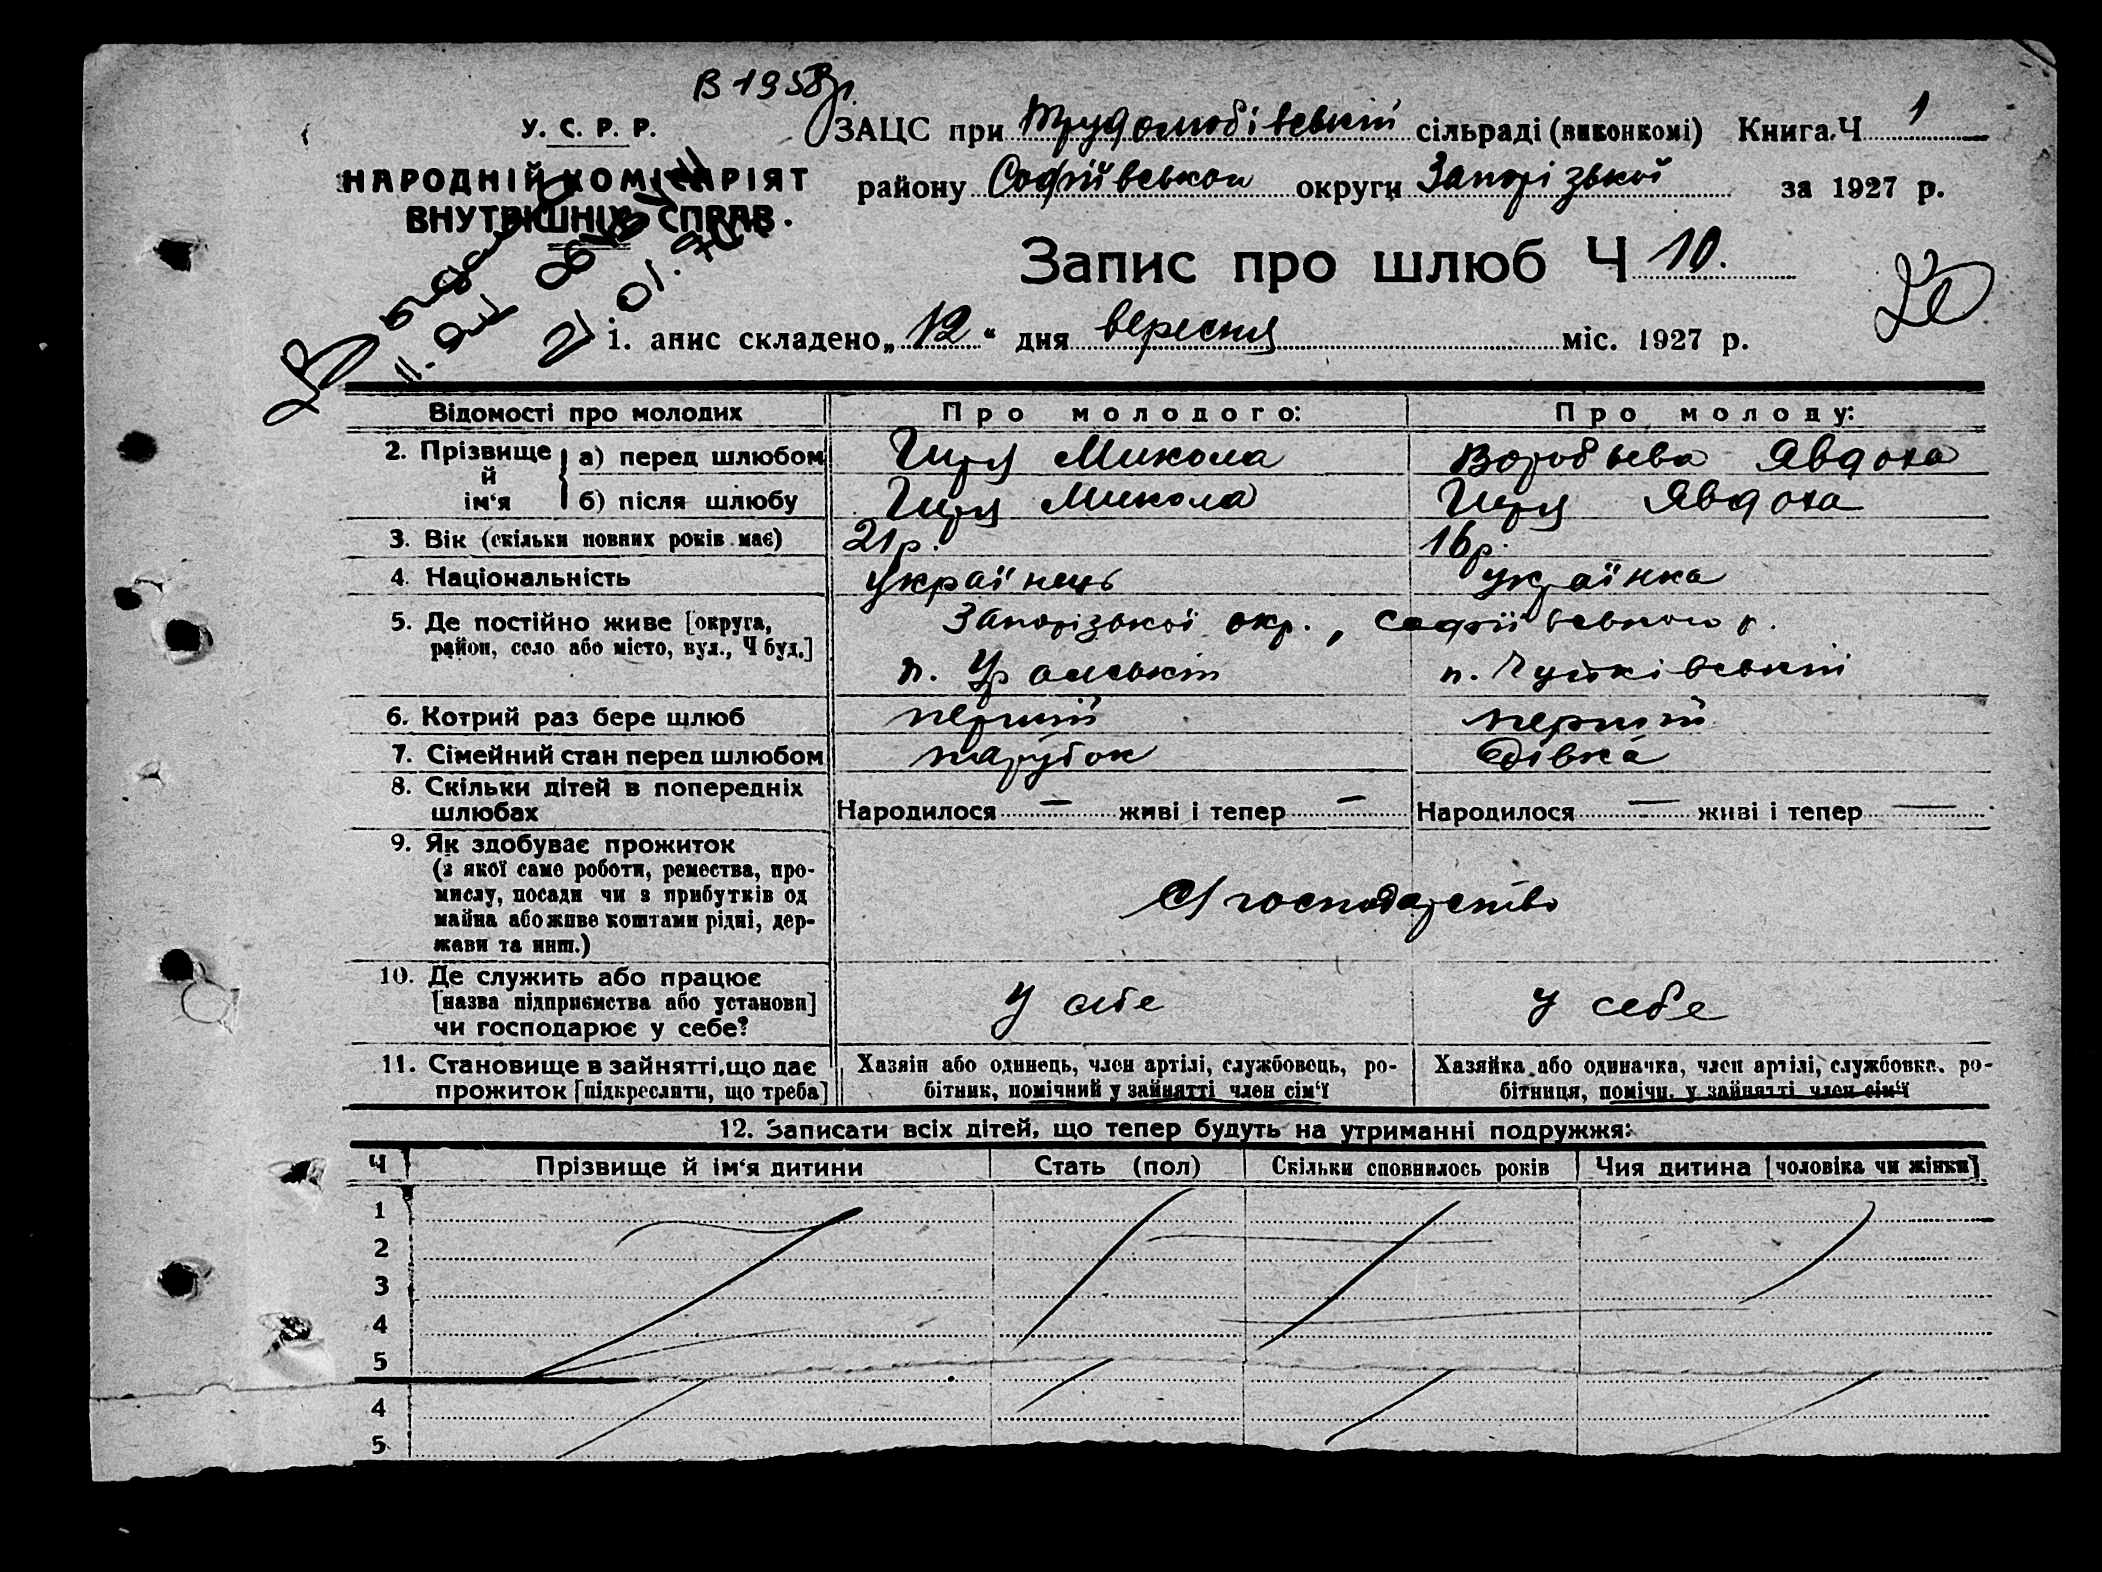 В 1958 р.
У. С. Р. Р.
НАРОДНІЙ КОМІСАРІЯТ
ВНУТРІШНІХ СПРАВ.
ЗАЦС при Трудолюбівській сільраді (виконкомі) Книга Ч 1
району Софіївського округи Запорізької за 1927 р.
Запис про шлюб Ч 10.
20
1. апис складено „12“ дня вересня міс. 1927 р.
Відомості про молодих Про молодого: Про молоду:
2. Прізвище й ім‘я а) перед шлюбом Гиря Микола Воробьева Явдоха
б) після шлюбу Гиря Микола Гиря Явдоха
3. Вік (скільки повних років має) 21р. 16р.
4. Національність українець українка
5. Де постійно живе [округа, Запорізької окр., Софіївського р.
район, село або місто, вул., Ч буд.] п. п.
6. Котрий раз бере шлюб перший перший
7. Сімейний стан перед шлюбом парубок дівка
8. Скільки дітей в попередніх
шлюбах Народилося — живі і тепер — Народилося — живі і тепер —
9. Як здобуває прожиток
(з якої саме роботи, ремества, про-
мислу, посади чи з прибутків од
майна або живе коштами рідні, дер-
жави та инш.)
С/господарство
10. Де служить або працює
[назва підприємства або установи]
чи господарює у себе? у себе у себе
11. Становище в зайнятті, що дає Хазяїн або одинець, член артілі, службовець, ро- Хазяйка або одиначка, член артілі, службовка, ро-
прожиток [підкреслити, що треба] бітник, помічний у зайнятті член сім‘ї бітниця, помічн. у зайнятті член сім‘ї
12. Записати всіх дітей, що тепер будуть на утриманні подружжя:
Ч Прізвище й ім‘я дитини Стать (пол) Скільки сповнилось років Чия дитина [чоловіка чи жінки]
1
2
3
4
5
4
5